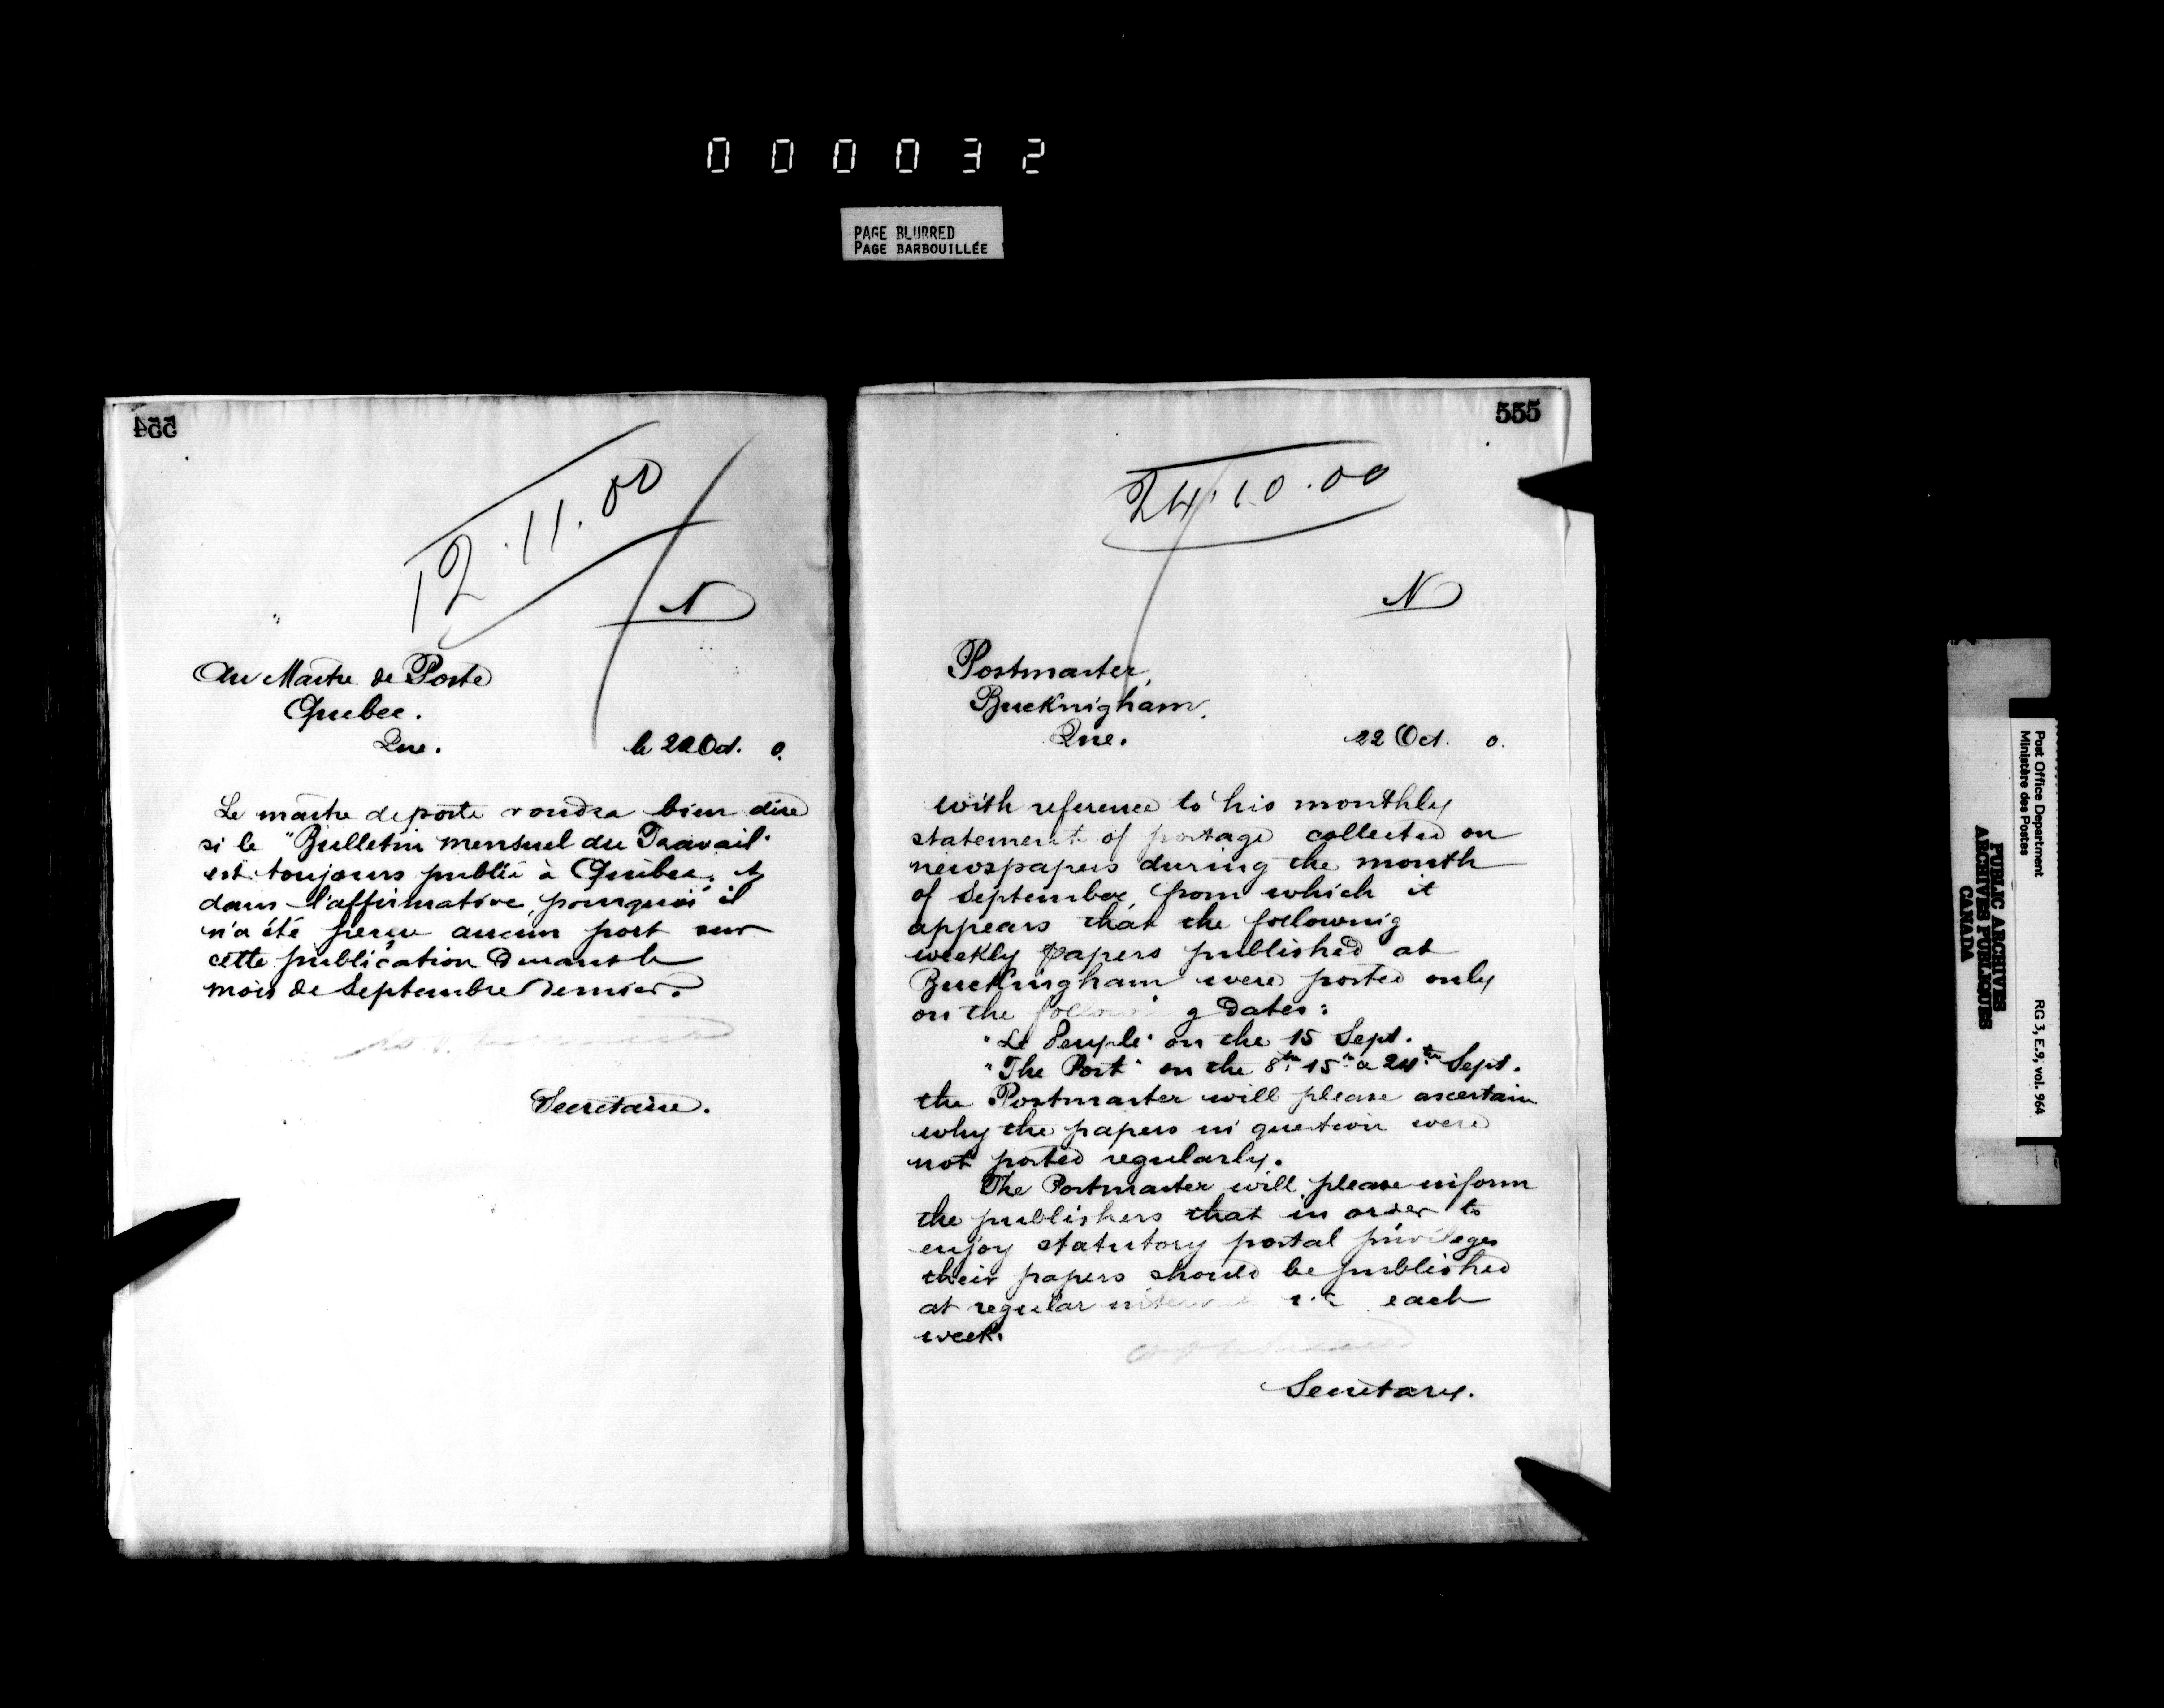 000032
PAGE BLURRED
PAGE BARBOUILLÉE
554
12.11.00
N
Au Maitre de Poste
Quebec.
Que.
le 22 Oct. 0.
Le maitre de poste voudra bien dire
si le "Bulletin mensuel du Travail"
est toujours publié à Québec, et
dans l'affirmative, pourquoi il
n'a été perçu aucun port sur
cette publication durant le
mois de Septembre dernier.
Secretaire.
555
24.10.00
N
Postmaster,
Buckingham,
Que.
22 Oct. 0.
with reference to his monthly
statement of postage collected on
newspapers during the month
of September, from which it
appears that the following
weekly papers published at
Buckingham were posted only
on the following dates:
"Le Peuple" on the 15 Sept.
"The Post" on the 8th 15th & 24th Sept.
the Postmaster will please ascertain
why the papers in question were
not posted regularly.
The Postmaster will please inform
the publishers that in order to
enjoy statutory postal privileges
their papers should be published
at regular intervals each
week.
Secretary.
Post Office Department
Ministère des Postes
RG 3, E.9, vol. 964
PUBLIC ARCHIVES
ARCHIVES PUBLIQUES
CANADA